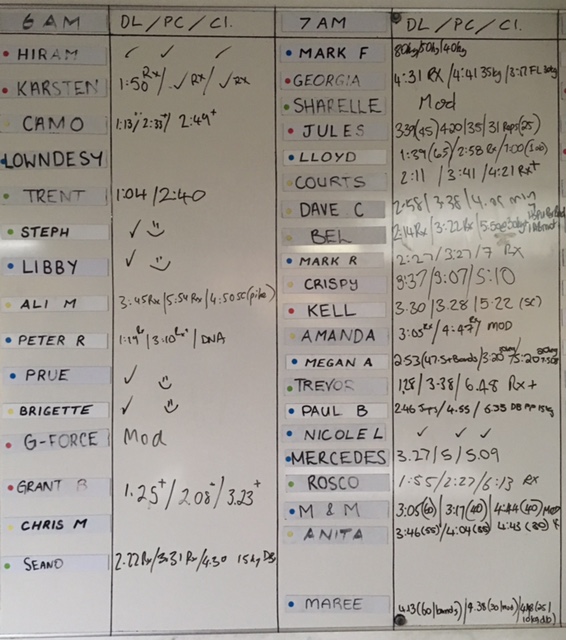 6 AM DL/PC/Cl.
HIRAM ✓ ✓ ✓
KARSTEN 1:50 Rx/✓Rx/✓Rx
CAMO 1:13/2:33+/2:49+
LOWNDESY
TRENT 1:04/2:40
STEPH ✓
LIBBY ✓
ALI M 3:45Rx/5:54Rx/4:50SC(pike)
PETER R 1:19/3:10/DNA
PRUE ✓
BRIGETTE ✓
G-FORCE Mod
GRANT B 1.25+/2.08+/3.23+
CHRIS M
SEANO 2.22Rx/3:31Rx/4.30 15kg DB
7 AM DL/PC/Cl.
MARK F 80kg/50kg/40kg
GEORGIA 4:31 RX/4:41 35kg/3:17
SHARELLE Mod
JULES 339(45)420/35/31 Reps(25)
LLOYD 1:39(65)/2:58 Rx/7:00(100)
COURTS 2:11/3:41/4:21 Rx+
DAVE C 2:58/3:38/
BEL 2:14Rx/3:22Rx/
MARK R 2:27/3:27/7 RX
CRISPY 3:37/3:07/5:10
KELL 3.30/3.28/5:22 (SC)
AMANDA 3:05Rx/4:47Rx/MOD
MEGAN A 2:53(47.5+Bands)/3:20
TREVOR 1.28/3.38/6.48 Rx+
PAUL B 2.46/4.55/6.35 DB 15kg
NICOLE L ✓ ✓ ✓
MERCEDES 3.27/5/5.09
ROSCO 1:55/2:27/6:13 RX
M & M 3:05(60)/3:17(40)/4:44(40) MOD
ANITA 3:46(55)/4:04(35) 4:43(30)
MAREE 4.13(60/bands)/4.38(30/mod)